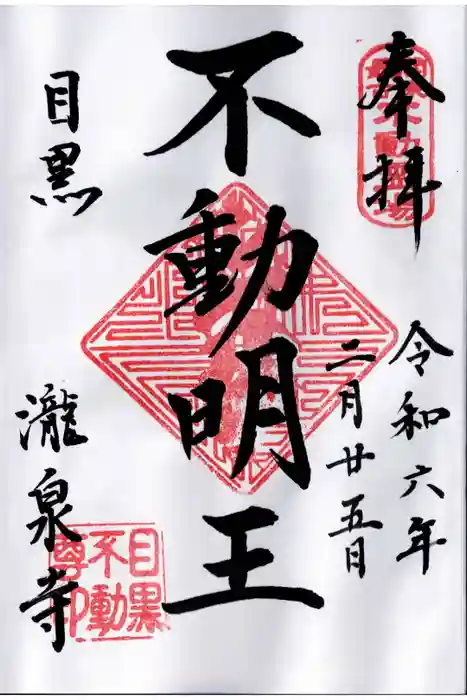 奉拝
令和六年
二月廿五日
不動明王
目黒
瀧泉寺
目黒
不動
尊印